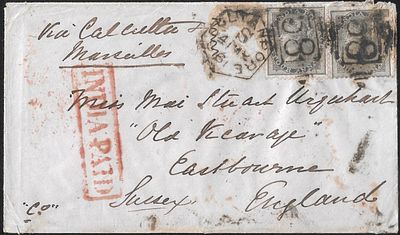 Via Calcutta &
Marseilles
INDIA PAID
B
B
Miss Mai Stuart Urquhart
"Old Vicarage"
Eastbourne
Sussex England
"CO"